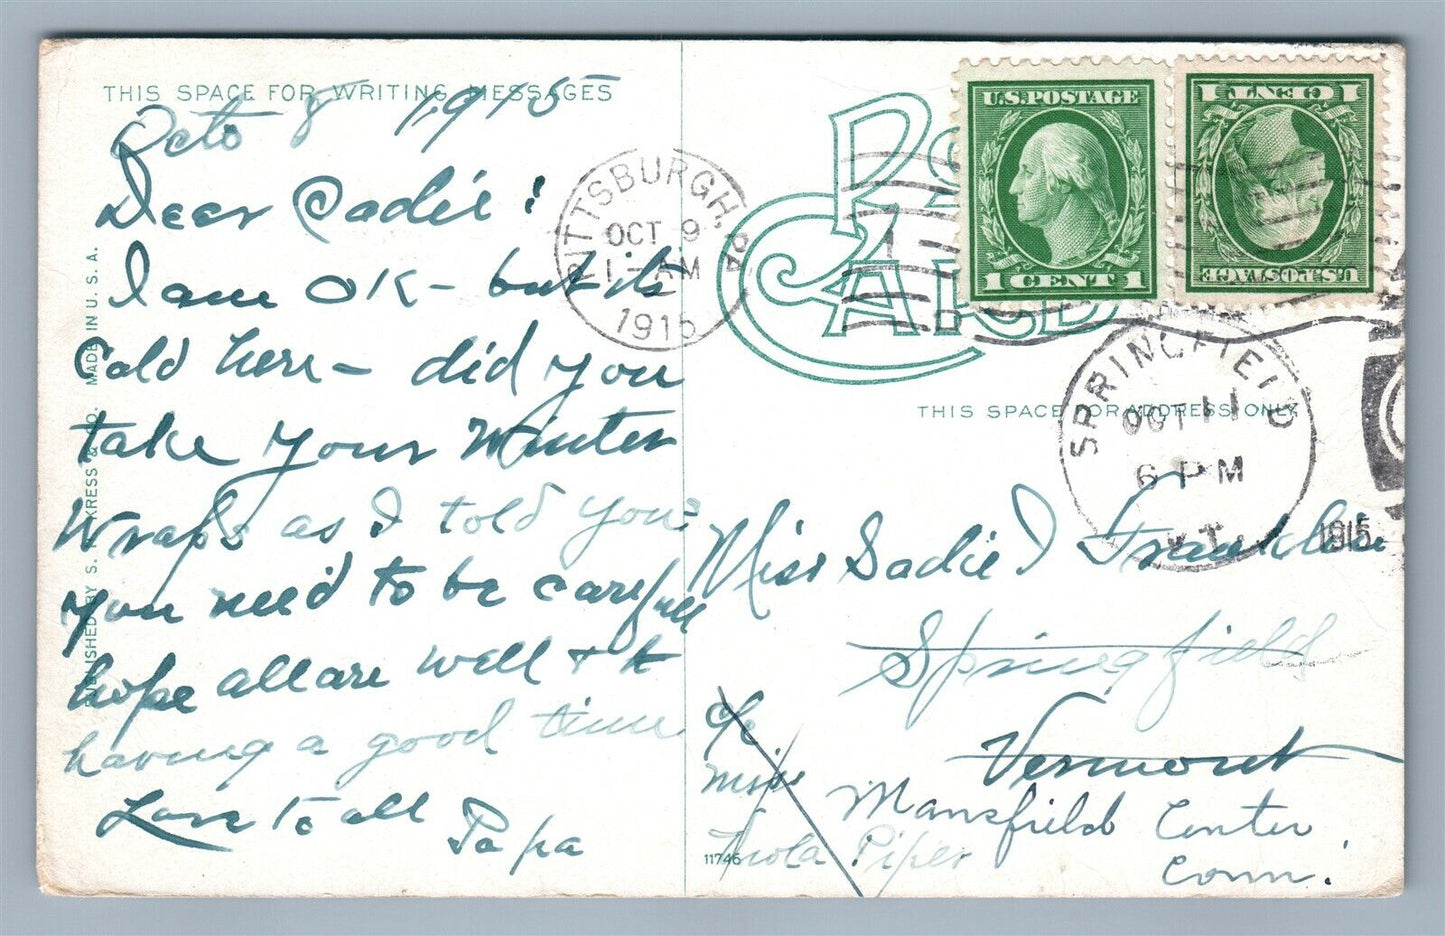 THIS SPACE FOR WRITING MESSAGES
Octo 8 1915
Dear Sadie!
I am OK - but its
Cold here - did you
take your Winter
Wraps as I told you
you need to be careful
hope all are well &
having a good time
Love to all
Papa
MADE IN U.S.A.
PUBLISHED BY S. H. KRESS & CO.
PITTSBURGH, PA
OCT 9
1-AM
1915
POST CARD
U.S. POSTAGE
1 CENT 1
1 CENT 1
U.S. POSTAGE
THIS SPACE FOR ADDRESS ONLY
SPRINGFIELD
OCT 11
6 PM
VT.
1915
Miss Sadie I Franklin
Springfield
Vermont
c/o
Miss
Viola Piper
Mansfield Center
Conn.
11746